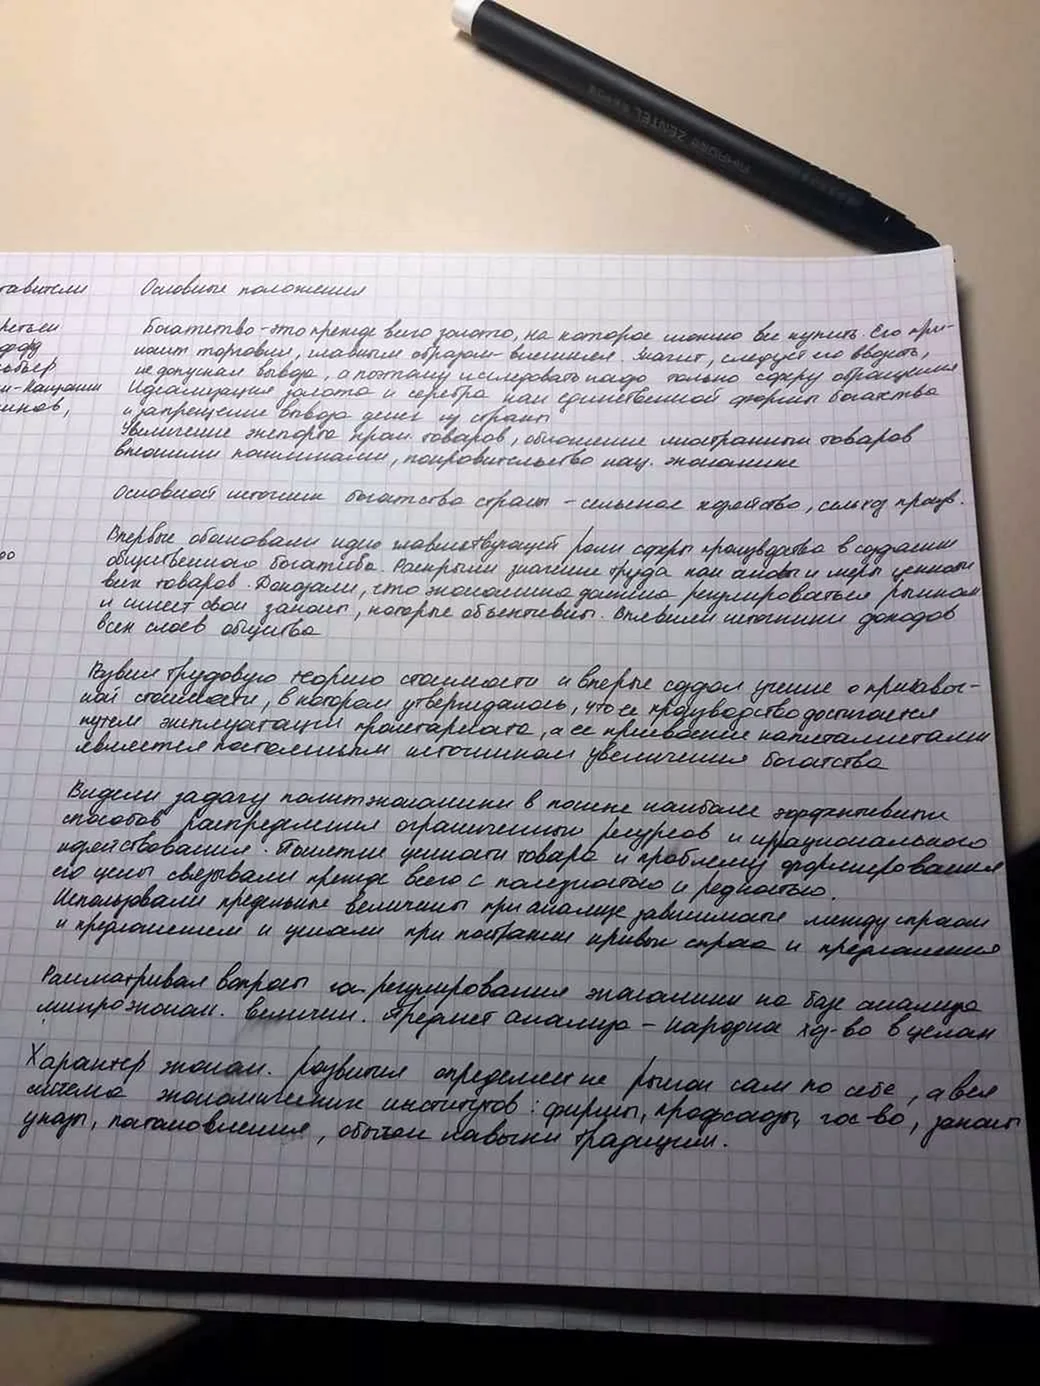 тавители Основные положения
Богатство - это прежде всего золото, на которое можно все купить. Его при-
носит торговля, главным образом - внешняя. Значит, следует его ввозить,
не допуская вывода, а поэтому исследовать надо только сферу обращения
Идеализация золота и серебра как единственной формы богатства
и запрещение вывода денег из страны
Увеличение экспорта пром товаров, обложение иностранных товаров
высокими пошлинами, покровительство нац. экономике
Основной источник богатства страны - сельское хозяйство, сельхоз произв.
Впервые обосновали идею главенствующей роли сферы производства в создании
общественного богатства. Раскрыли значение труда как основы и меры ценности
всех товаров. Доказали, что экономика должна регулироваться рынком
и имеет свои законы, которые объективны. Выявили источники доходов
всех слоев общества
Развил трудовую теорию стоимости и впервые создал учение о прибавоч-
ной стоимости, в котором утверждалось, что ее производство достигается
путем эксплуатации пролетариата, а ее присвоение капиталистами
является постоянным источником увеличения богатства
Видели задачу политэкономики в поиске наиболее эффективных
способов распределения ограниченных ресурсов и иррационального
хозяйствования. Понятие ценности товара и проблему формирования
его цены связывали прежде всего с полезностью и редкостью.
Использовали предельные величины при анализе зависимости между спросом
и предложением и ценами при построении кривых спроса и предложения
Рассматривал вопросы гос. регулирования экономики на базе анализа
микроэконом. величин. Предмет анализа - народное хоз-во в целом
Характер эконом. развития определяет не рынок сам по себе, а вся
система экономических институтов: фирмы, профсоюзы, гос-во, законы
указы, постановления, обычаи навыки традиции.